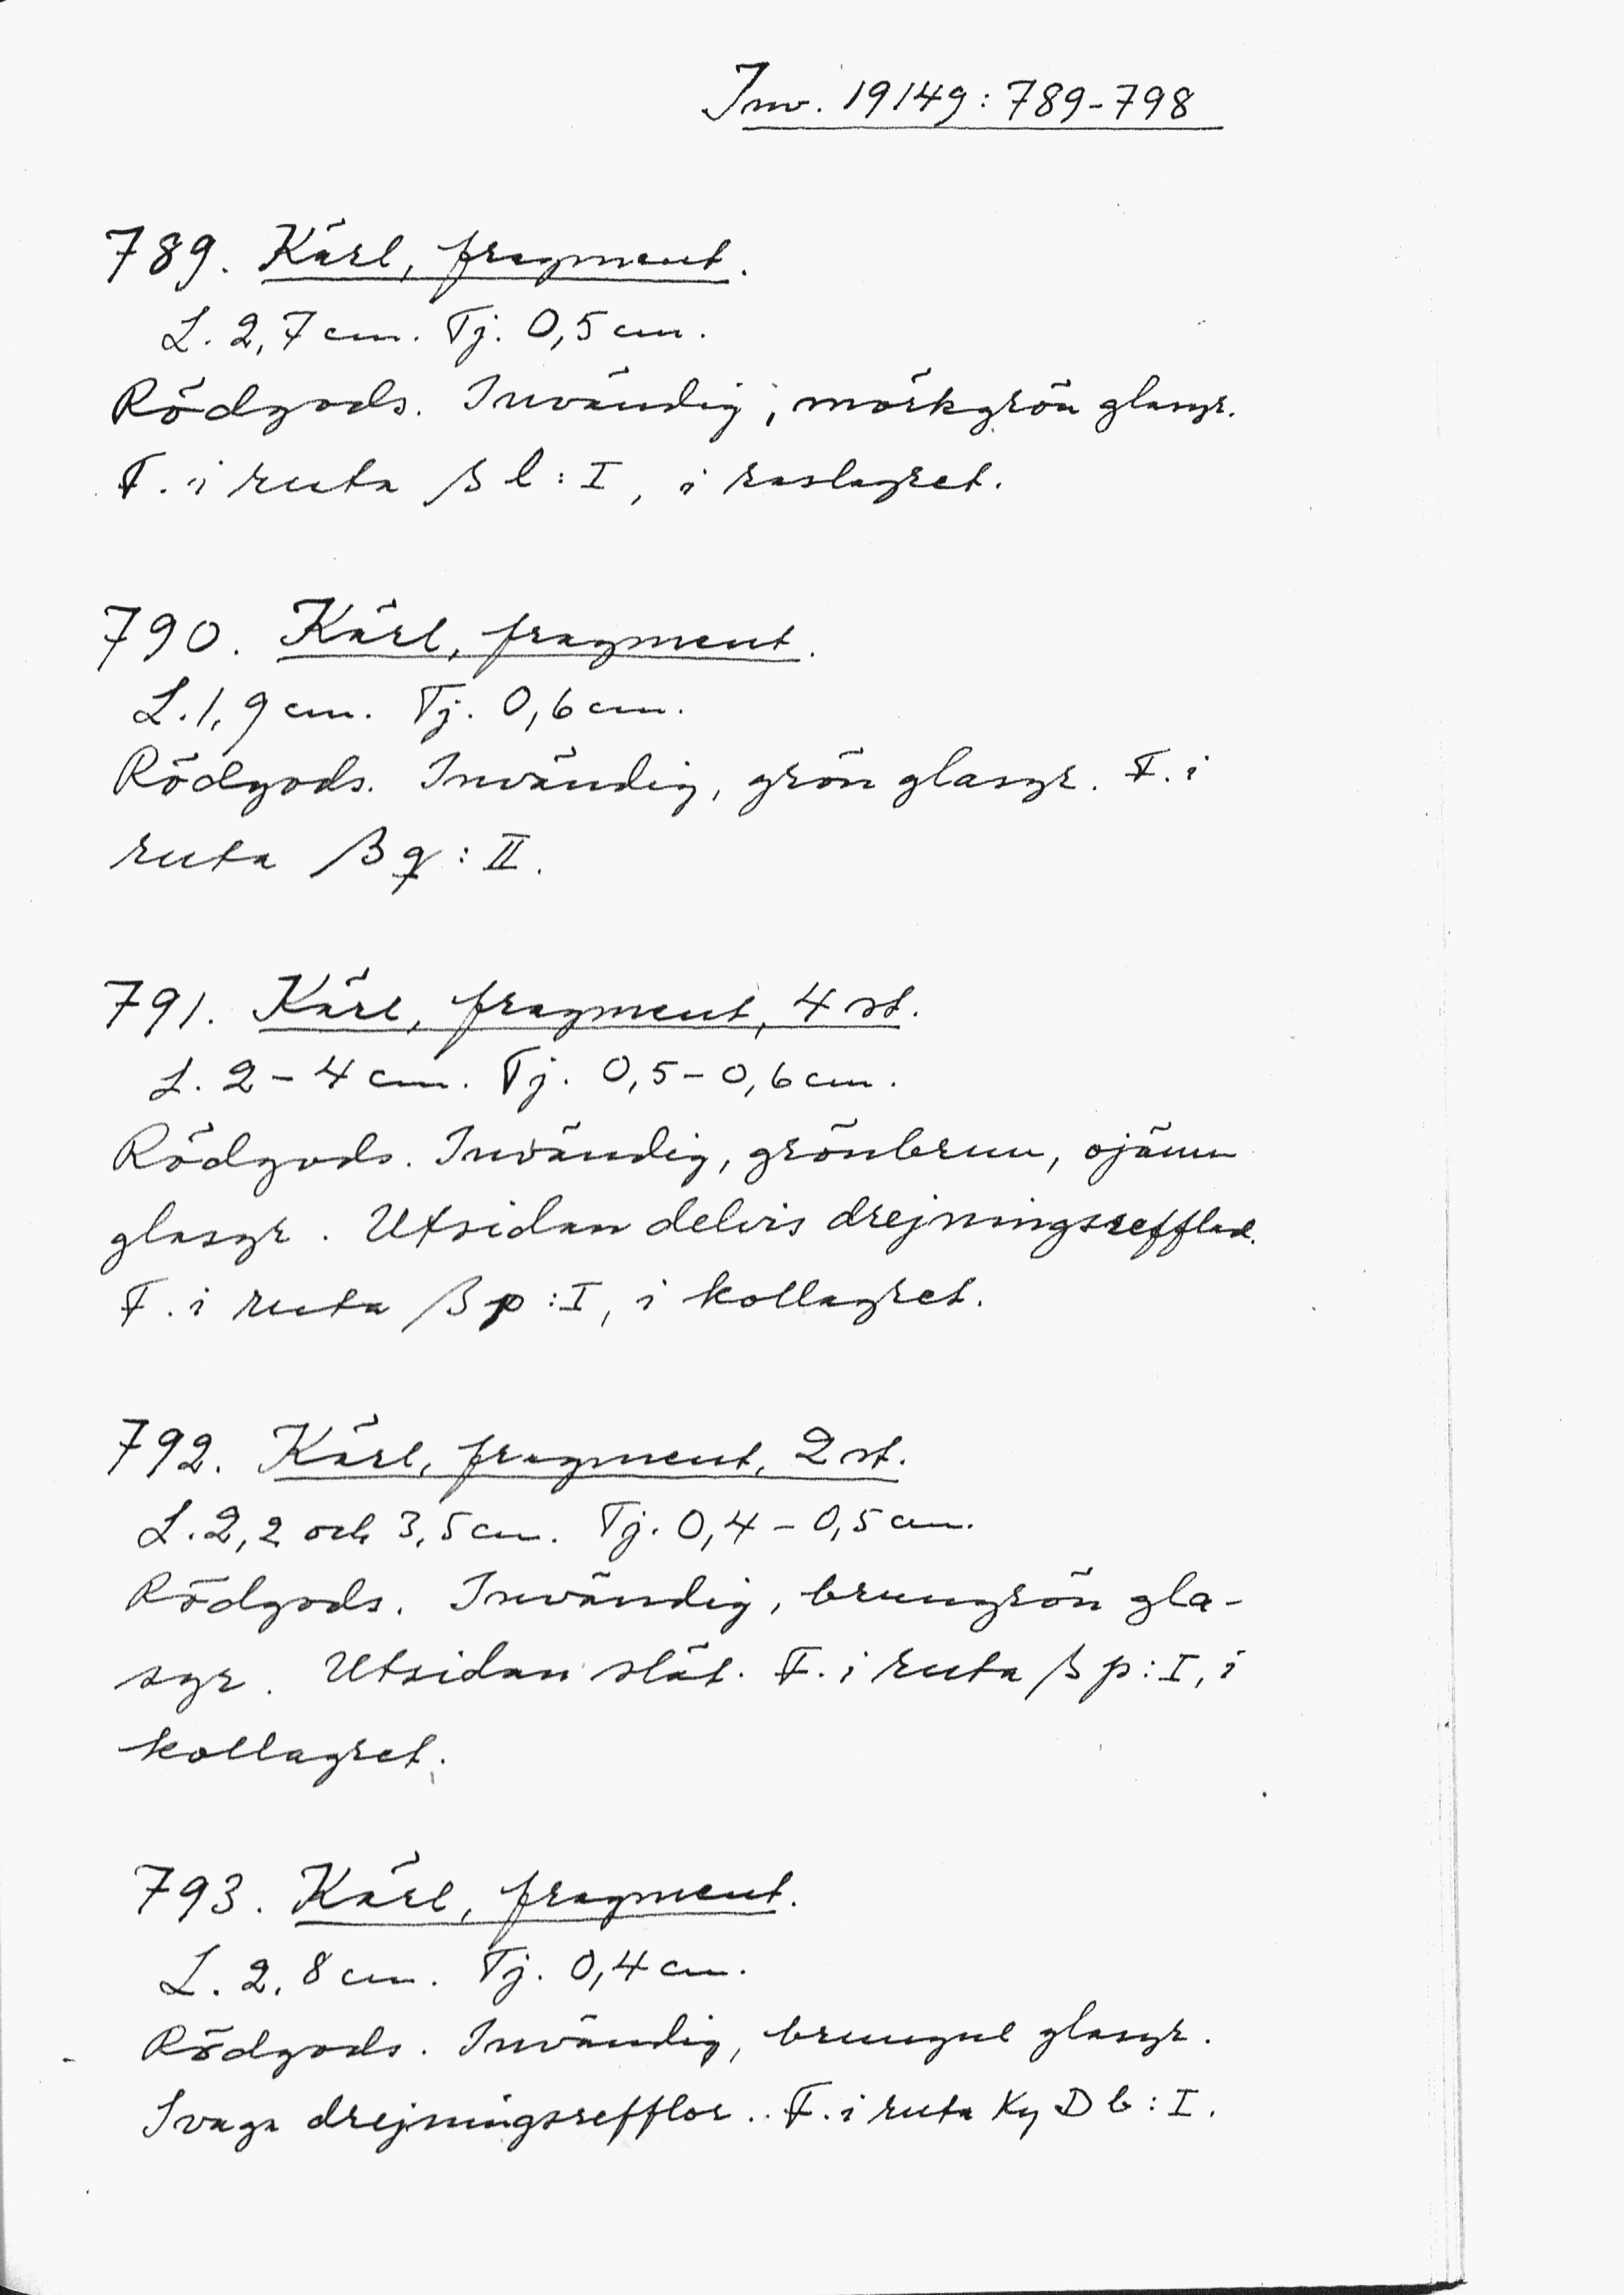 Inv. 19149:789-798
789. Kärl, fragment.
L. 2,7 cm. Tj. 0,5 cm.
Rödgods. Invändig, mörkgrön glasyr.
F. i ruta β l : I, i raslagret.
790. Kärl, fragment.
L. 1,9 cm. Tj. 0,6 cm.
Rödgods. Invändig, grön glasyr. F. i
ruta β q : II.
791. Kärl, fragment, 4 st.
L. 2 - 4 cm. Tj. 0,5 - 0,6 cm.
Rödgods. Invändig, grönbrun, ojämn
glasyr. Utsidan delvis drejningsrefflad.
F. i ruta β p : I, i kollagret.
792. Kärl, fragment, 2 st.
L. 2,2 och 3,5 cm. Tj. 0,4 - 0,5 cm.
Rödgods. Invändig, brungrön gla-
syr. Utsidan slät. F. i ruta β p : I, i
kollagret.
793. Kärl, fragment.
L. 2,8 cm. Tj. 0,4 cm.
Rödgods. Invändig, brungul glasyr.
Svaga drejningsrefflor. F. i ruta Ky D b : I.